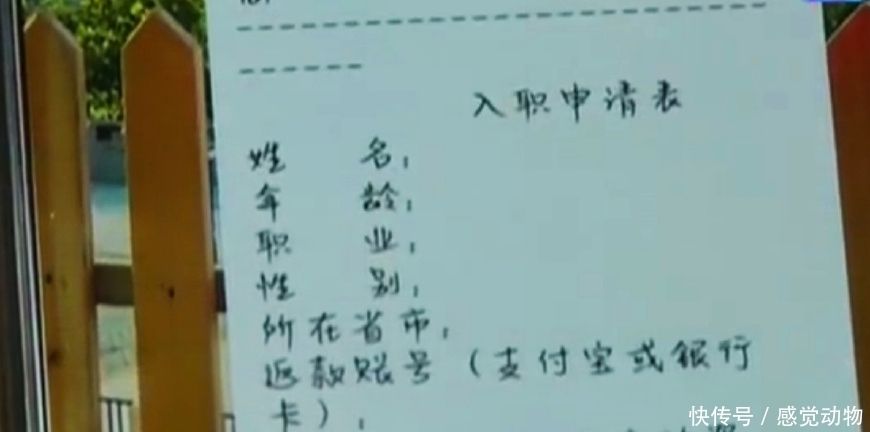 入职申请表
姓 名：
年 龄：
职 业：
性 别：
所在省市：
返款账号（支付宝或银行
卡）：
快传号 / 感觉动物